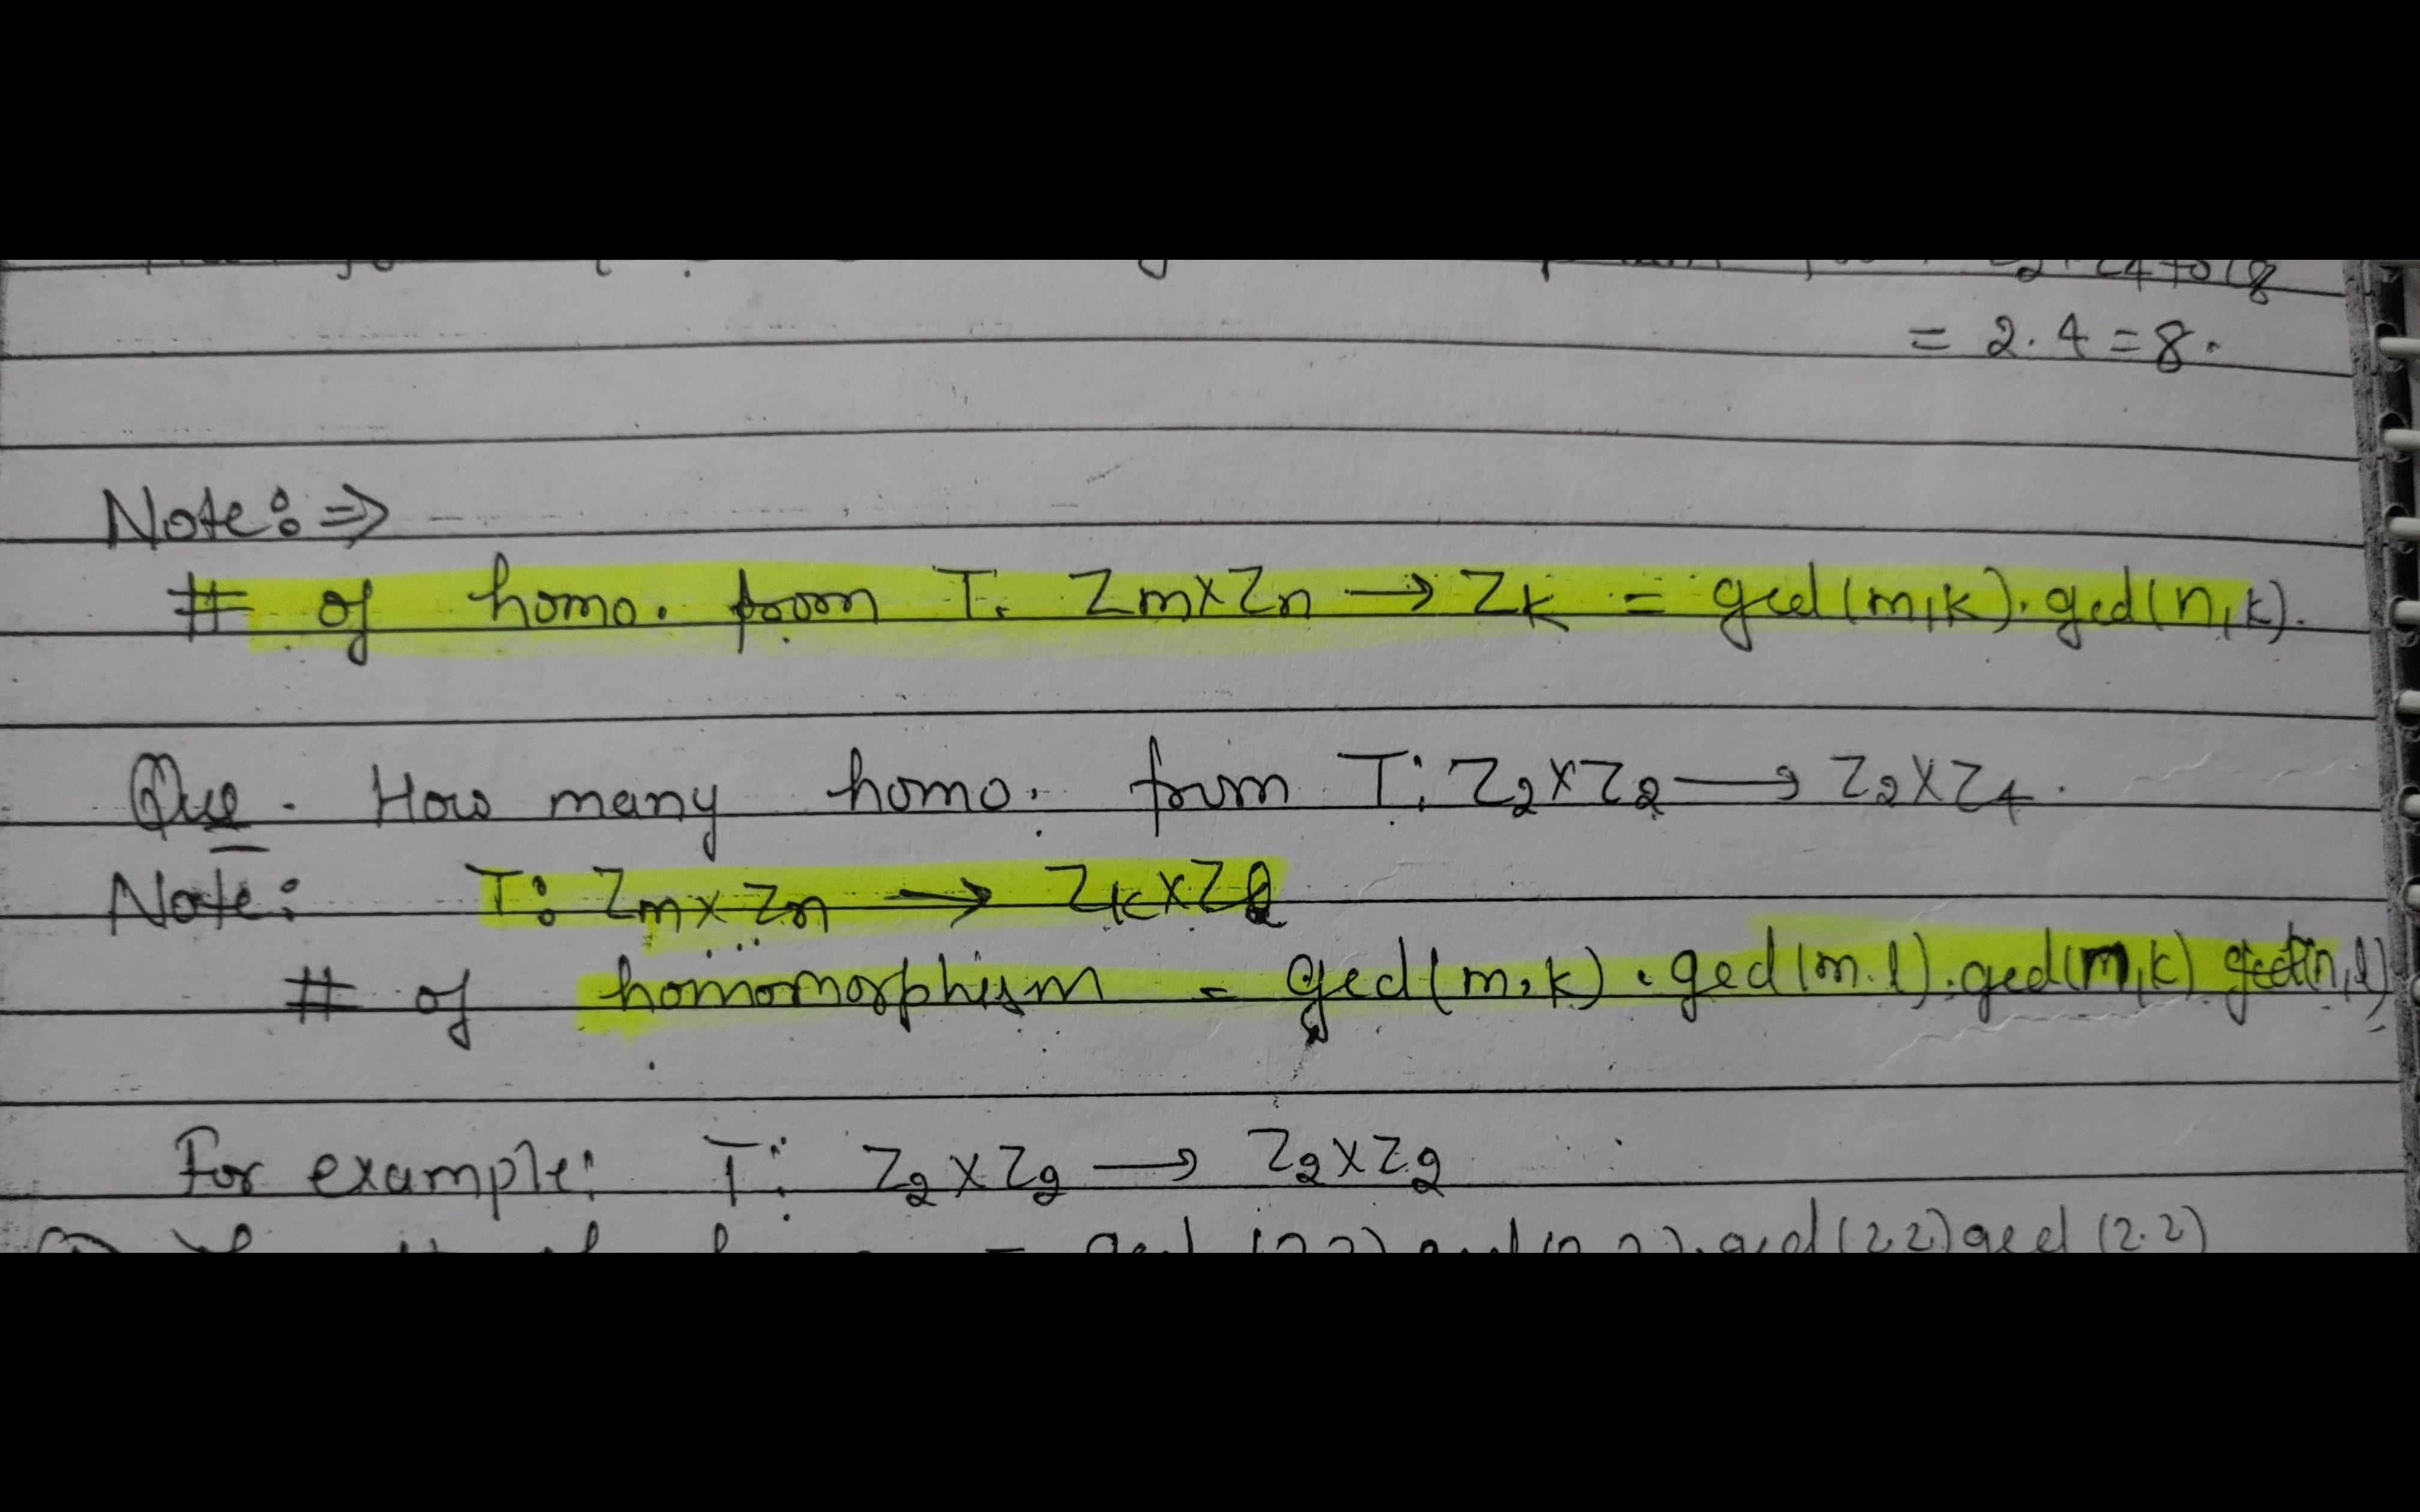 = 2.4 = 8.
Note: ⇒
# of homo. from T: Zm×Zn → Zk = gcd(m,k). gcd(n,k).
Que. How many homo. from T: Z2×Z2 → Z2×Z4.
Note: T: Zm×Zn → Zk×Zl
# of homomorphism = gcd(m,k). gcd(m.l). gcd(m,k) gcd(n,l)
For example: T: Z2×Z2 → Z2×Z2
gcd(2,2) gcd(2.2)